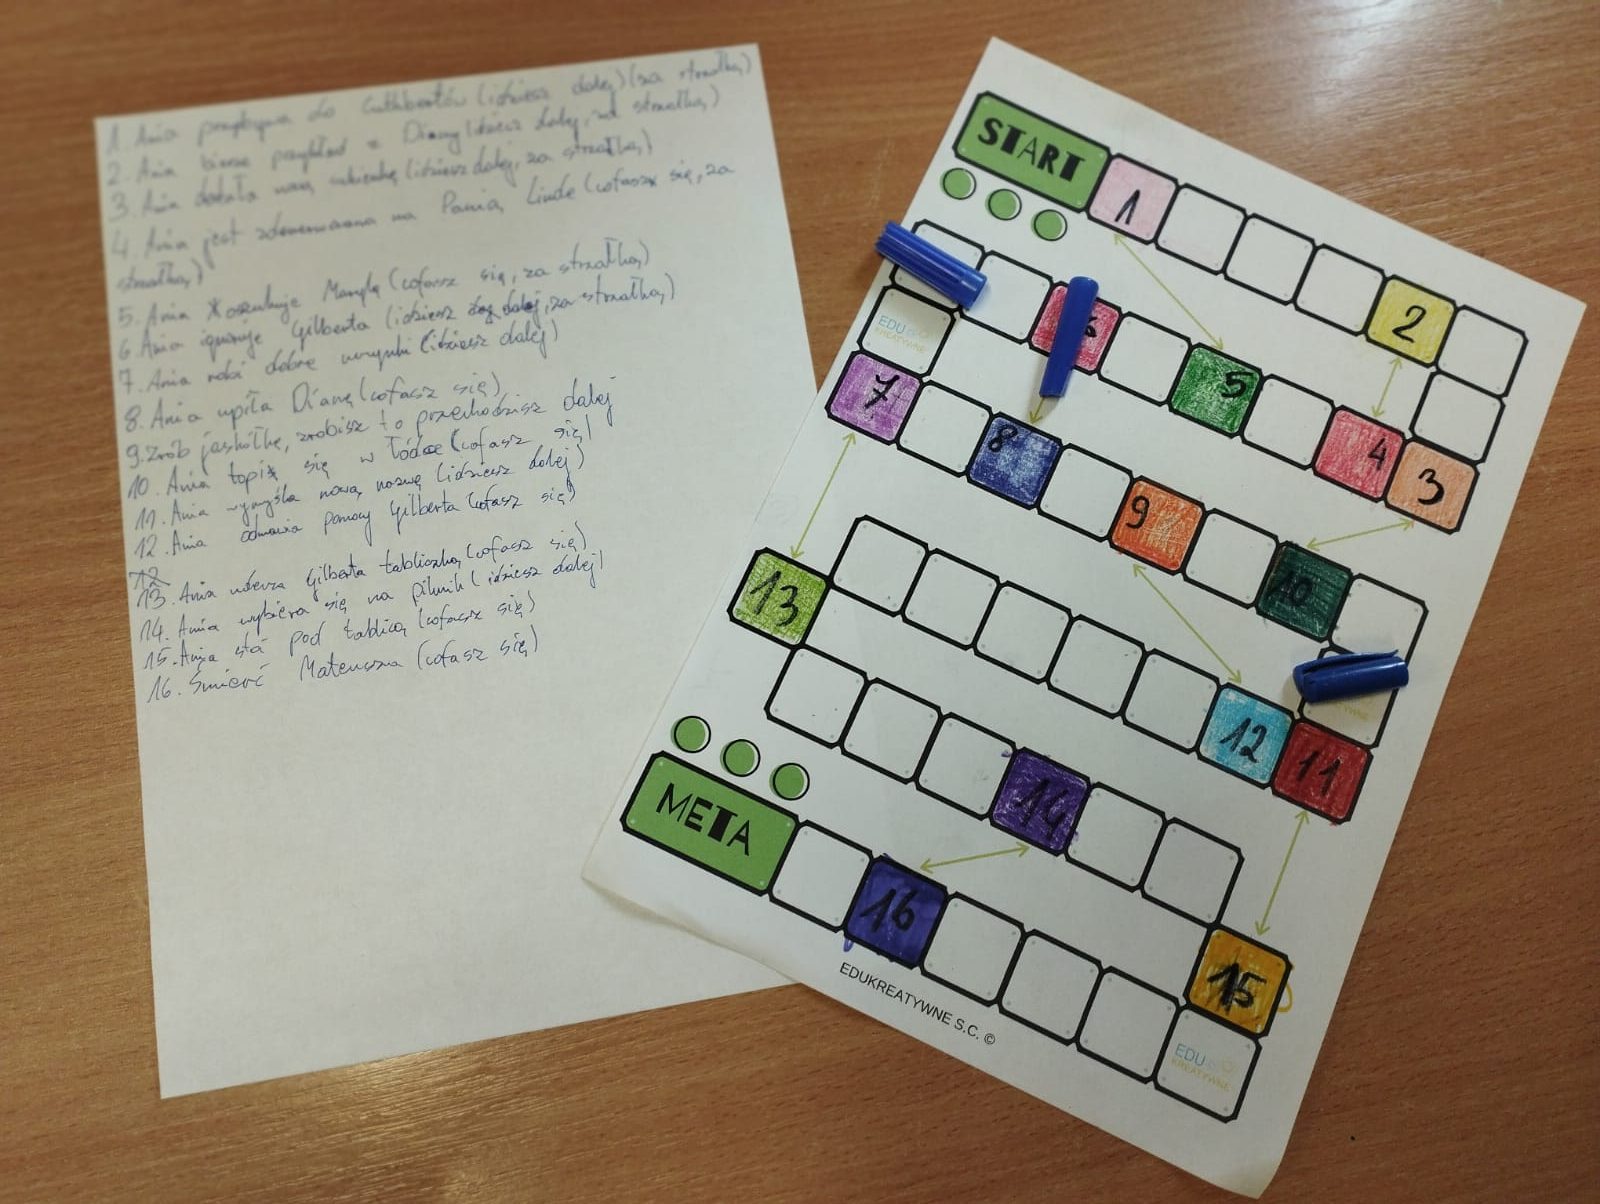 1. Ania przybywa do Cuthbertów (idziesz dalej) (za strzałką)
2. Ania bierze przykład z Diany (idziesz dalej, za strzałką)
3. Ania dostała nową sukienkę (idziesz dalej, za strzałką)
4. Ania jest zdenerwowana na Panią Linde (cofasz się, za
strzałką)
5. Ania oszukuje Marylę (cofasz się, za strzałką)
6. Ania ignoruje Gilberta (idziesz dalej, za strzałką)
7. Ania robi dobre uczynki (idziesz dalej)
8. Ania upiła Dianę (cofasz się)
9. Zrób jaskółkę, zrobisz to przechodzisz dalej
10. Ania topi się w łódce (cofasz się)
11. Ania wymyśla nową nazwę (idziesz dalej)
12. Ania odmawia pomocy Gilberta (cofasz się)
12
13. Ania uderza Gilberta tabliczką (cofasz się)
14. Ania wybiera się na piknik (idziesz dalej)
15. Ania stoi pod tablicą (cofasz się)
16. Śmierć Mateusza (cofasz się)
START
1
2
3
4
5
6
EDU
KREATYWNE
7
8
9
10
11
12
13
14
15
EDU
KREATYWNE
16
META
EDUKREATYWNE S.C. ©